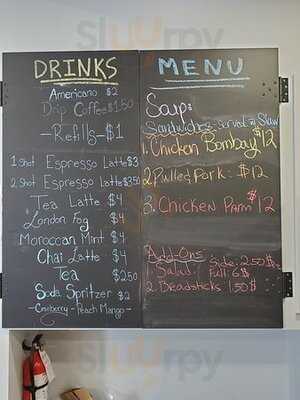 DRINKS
Americano $2
Drip Coffee $1.50
-Refills-$1
1 Shot Espresso Latte $3
2 Shot Espresso Latte $3.50
Tea Latte $4
London Fog $4
Moroccan Mint $4
Chai Latte $4
Tea $2.50
Soda Spritzer $2
-Cranberry - Peach Mango-
MENU
Soup:
Sandwiches: served w/ Slaw
1. Chicken Bombay $12
2. Pulled Pork: $12
3. Chicken Parm $12
Add-Ons
1. Salad: Side: 2.50$
Full: 6$
2. Breadsticks 1.50$
sluurpy
sluurpy